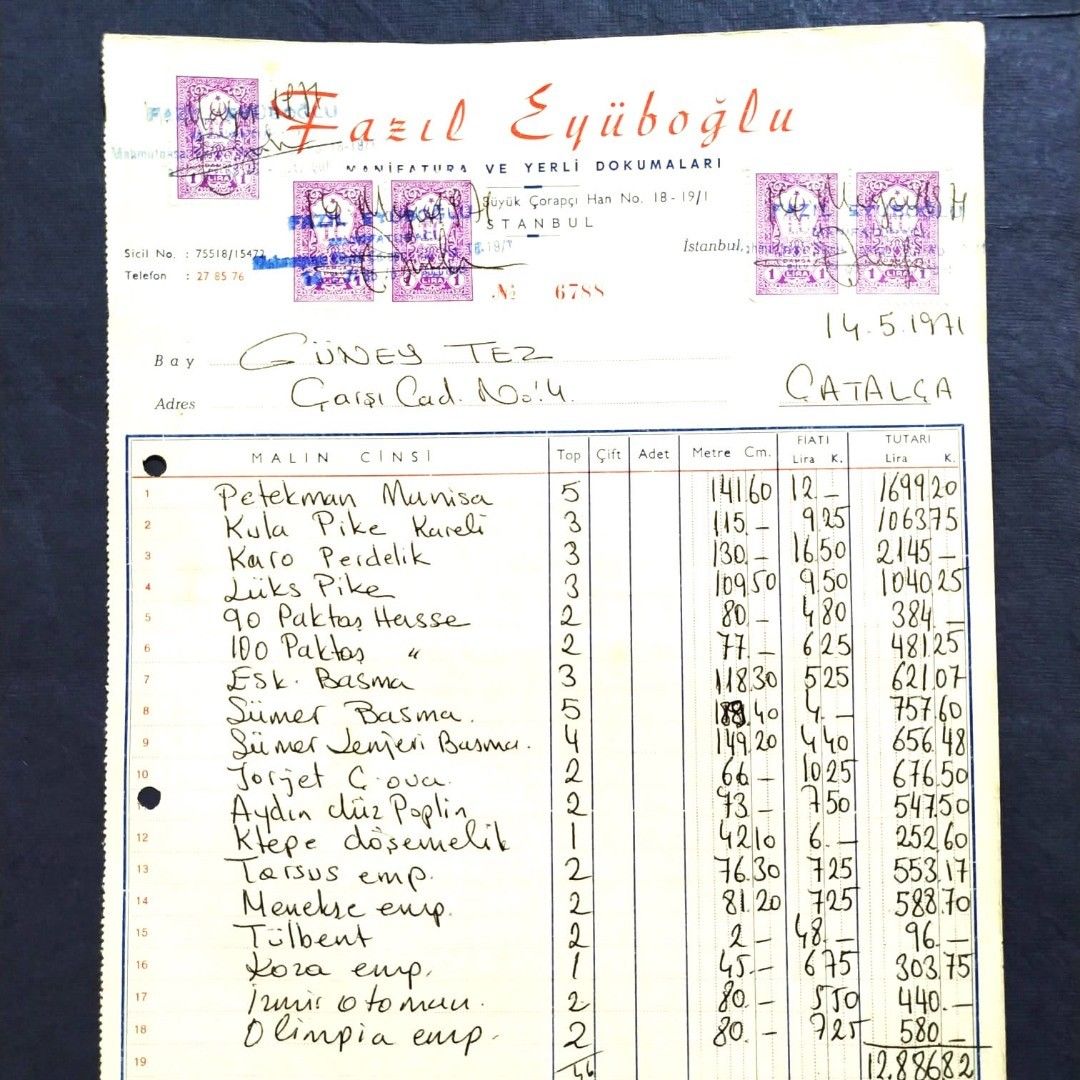 Fazıl Eyüboğlu
MANİFATURA VE YERLİ DOKUMALARI
Büyük Çorapçı Han No. 18-19/1
İSTANBUL
FAZIL EYÜBOĞLU
Sicil No. : 75518/15472
Telefon : 27 85 76
No 6788
İstanbul,
14.5.1971
Bay GÜNEY TEZ
Adres Çarşı Cad. No: 4. ÇATALÇA
MALIN CİNSİ Top Çift Adet Metre Cm. FİATI Lira K. TUTARI Lira K.
1 Petekman Munisa 5 141.60 12.— 1699 20
2 Kula Pike Kareli 3 115.— 9 25 1063 75
3 Karo Perdelik 3 130.— 16 50 2145 —
4 Lüks Pike 3 109 50 9 50 1040 25
5 90 Paktaş Hasse 2 80.— 4 80 384.—
6 100 Paktaş " 2 77.— 6 25 481.25
7 Esk. Basma 3 118.30 5 25 621.07
8 Sümer Basma. 5 .40 4.— 757.60
9 Sümer Jenjeri Basma. 4 149.20 4 40 656.48
10 Jorjet Ç.ova. 2 66.— 10 25 676.50
Aydın düz Poplin 2 73.— 7 50 547.50
12 Ktepe döşemelik 1 42.10 6.— 252.60
13 Tarsus emp. 2 76.30 7 25 553.17
14 Menekşe emp. 2 81.20 7 25 588.70
15 Tülbent 2 2.— 48.— 96.—
16 Koza emp. 1 45.— 6 75 303.75
17 İzmir otoman. 2 80.— 5 50 440.—
18 Olimpia emp. 2 80.— 7 25 580.—
19 46 12.886 82